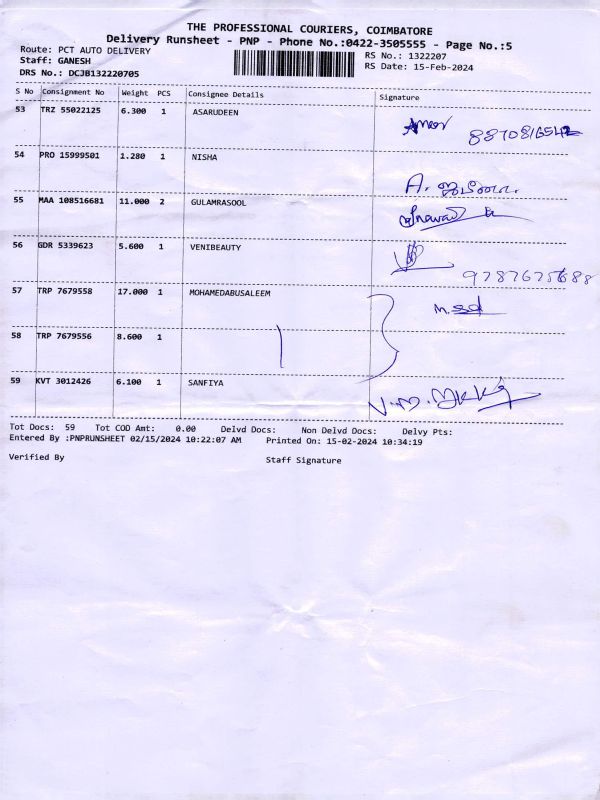 THE PROFESSIONAL COURIERS, COIMBATORE
Delivery Runsheet - PNP - Phone No.:0422-3505555 - Page No.:5
Route: PCT AUTO DELIVERY
RS No.: 1322207
Staff: GANESH
RS Date: 15-Feb-2024
DRS No.: DCJB132220705
S No Consignment No Weight PCS Consignee Details Signature
53 TRZ 55022125 6.300 1 ASARUDEEN
54 PRO 15999501 1.280 1 NISHA
A.
55 MAA 108516681 11.000 2 GULAMRASOOL
56 GDR 5339623 5.600 1 VENIBEAUTY
57 TRP 7679558 17.000 1 MOHAMEDABUSALEEM
58 TRP 7679556 8.600 1
59 KVT 3012426 6.100 1 SANFIYA
Tot Docs: 59 Tot COD Amt: 0.00 Delvd Docs: Non Delvd Docs: Delvy Pts:
Entered By :PNPRUNSHEET 02/15/2024 10:22:07 AM Printed On: 15-02-2024 10:34:19
Verified By Staff Signature